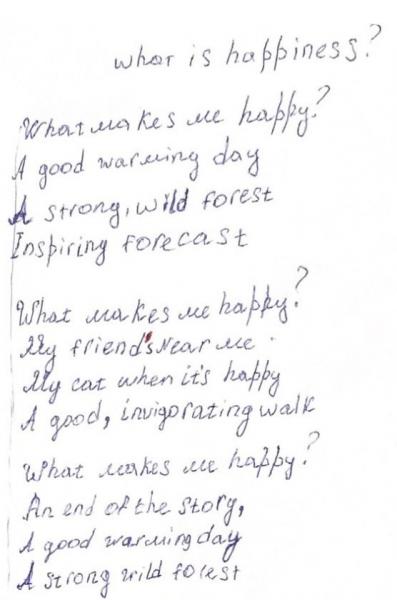 what is happiness?
What makes me happy?
A good warming day
A strong, wild forest
Inspiring forecast
What makes me happy?
My friend's Near me.
My cat when it's happy
A good, invigorating walk
What makes me happy?
An end of the story,
A good warming day
A strong wild forest